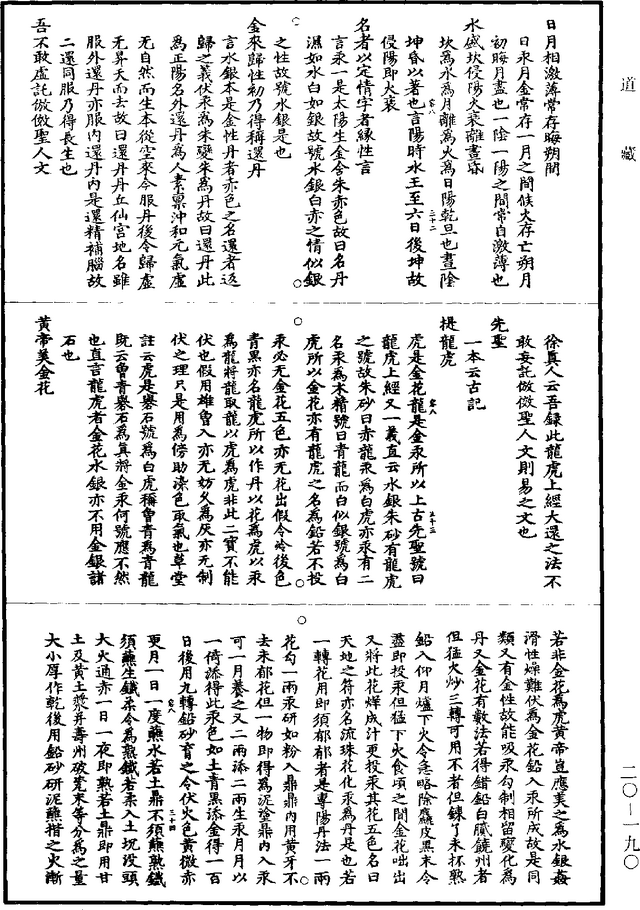 道藏
日月相激薄常存晦朔間
日汞月金常存一月之間候火存亡朔月
初晦月盡也一陰一陽之間常自激薄也
水盛坎侵陽火衰離晝昏
坎為水為月離為火為日陽乾旦也晝陰
坤昏以著也言陽時水王至六日後坤故
侵陽即火衰
名者以定情字者緣性言
言汞一是太陽生金舍朱赤色故曰名丹
濕如水白如銀故號水銀白赤之情似銀
之性故號水銀是也
金來歸性初乃得稱還丹
言水銀本是金性丹者赤色之名還者返
歸之義伏汞為朱變朱為丹故曰還丹此
為正陽名外還丹為人素稟沖和元氣虛
无自然而生本從空來今服丹後令歸虛
无昇天而去故曰還丹丹丘仙宮地名雖
服外還丹亦服內還丹內是還精補腦故
二還同服乃得長生也
吾不敢虛託倣傚聖人文
徐真人云吾錄此龍虎上經大還之法不
敢妄託倣傚聖人文則易之文也
先聖
一本云古記
提龍虎
虎是金花龍是金汞所以上古先聖號曰
龍虎上經又一義直云水銀朱砂有龍虎
之號故朱砂曰赤龍汞為白虎亦汞有二
名汞為木精號曰青龍而白似銀號為白
虎所以金花亦有龍虎之名為鉛若不投
汞必无金花五色亦无花出假令冷後色
青黑亦名龍虎所以作丹以花為虎以汞
為龍將龍取龍以虎為虎非此二寶不能
伏也假用雄曾入亦无妨久為灰亦无制
伏之理只是用為傍助染色取氣也草堂
註云虎是礜石號為白虎稱曾青為青龍
既云曾青礜石為真將金汞何號應不然
也直言龍虎者金花水銀亦不用金銀諸
石也
黃帝美金花
若非金花為虎黃帝豈應美之為水銀姦
滑性燥難伏為金花鉛入汞所成故是同
類又有金性故能吸汞勾制相留變化為
丹又金花有數法若得錯鉛白臈饒州者
但猛火炒三轉可用不者但鍊了未杯熟
鉛入仰月爐下火令急略除麤皮黑末令
盡即投汞但猛下火食頃之間金花𠰂出
又將此花烊成汁更投汞其花五色名曰
天地之符亦名流珠花化汞為丹是也若
一轉花用即須郁郁者是專陽丹法一兩
花勾一兩汞研如粉入鼎鼎內用黃牙不
去未郁花但一物即得為泥塗鼎內入汞
可一月養之又二兩添二兩生汞月月以
一倚添得此汞色如土青黑添金得一百
日後用九轉鉛砂育之令伏火色黃微赤
更月一日一度蘸水若土鼎不須蘸熟鐵
須蘸生鐵柔令為熟鐵若柔入土坑没頭
大火通赤一日一夜即熟若土鼎即用甘
土及黃土漿并壽州破瓷末等分為之量
大小厚作乾後用鉛砂研泥蘸揩之火漸
二〇—一九〇